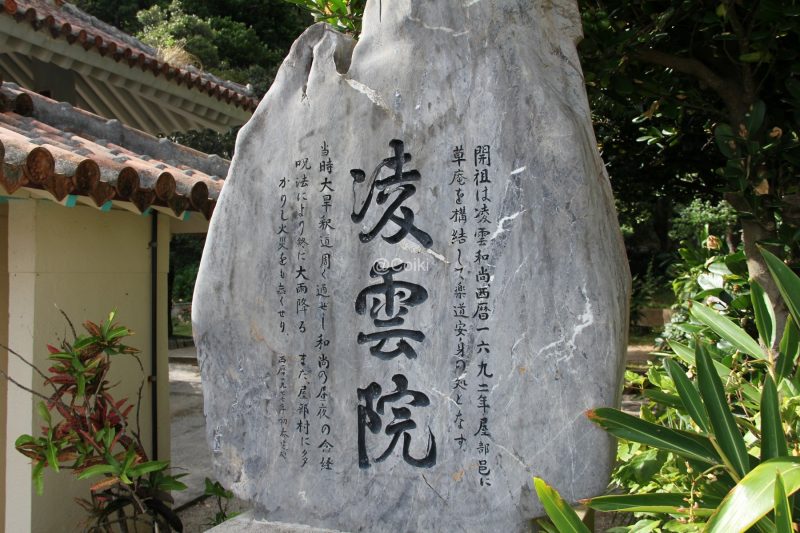 開祖は凌雲和尚西暦一六九二年屋部邑に
草庵を構結して楽道安身の処となす
凌雲院
当時大旱釈道周く逼せし和尚の昼夜の念経
呪法により終に大雨降る また屋部村に多
かりし火災をも無くせり
@Coiki